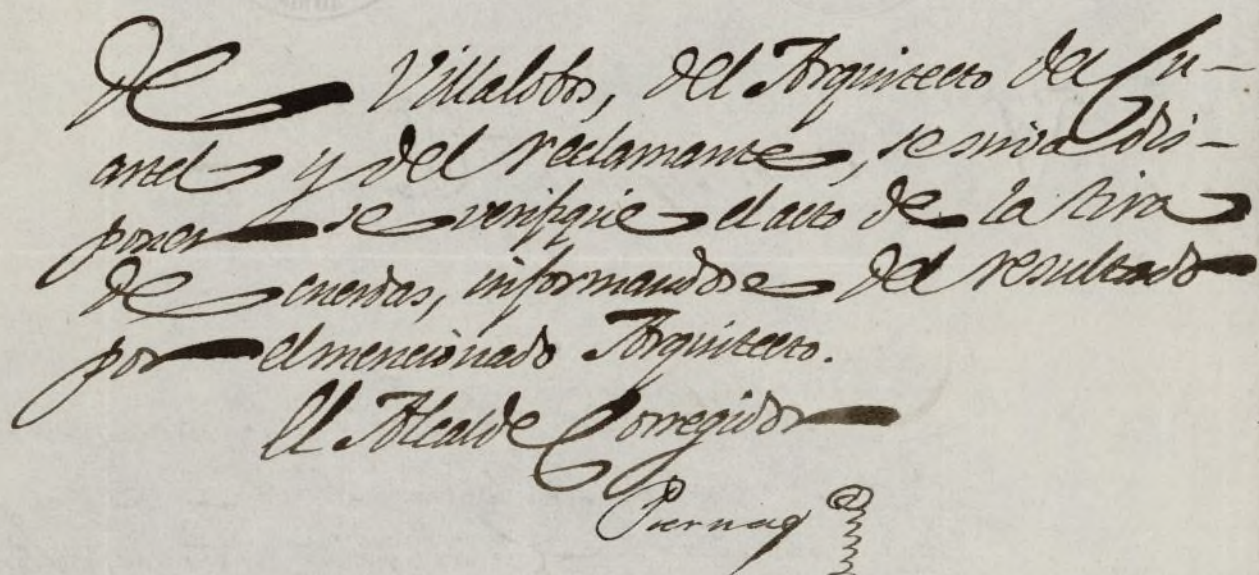 de Villalobos, del Arquitecto del Cu-
artel y del reclamante, se sirva dis-
poner se verifique el acto de la tira
de cuerdas, informandose del resultado
por el mencionado Arquitecto.
El Alcalde Corregidor